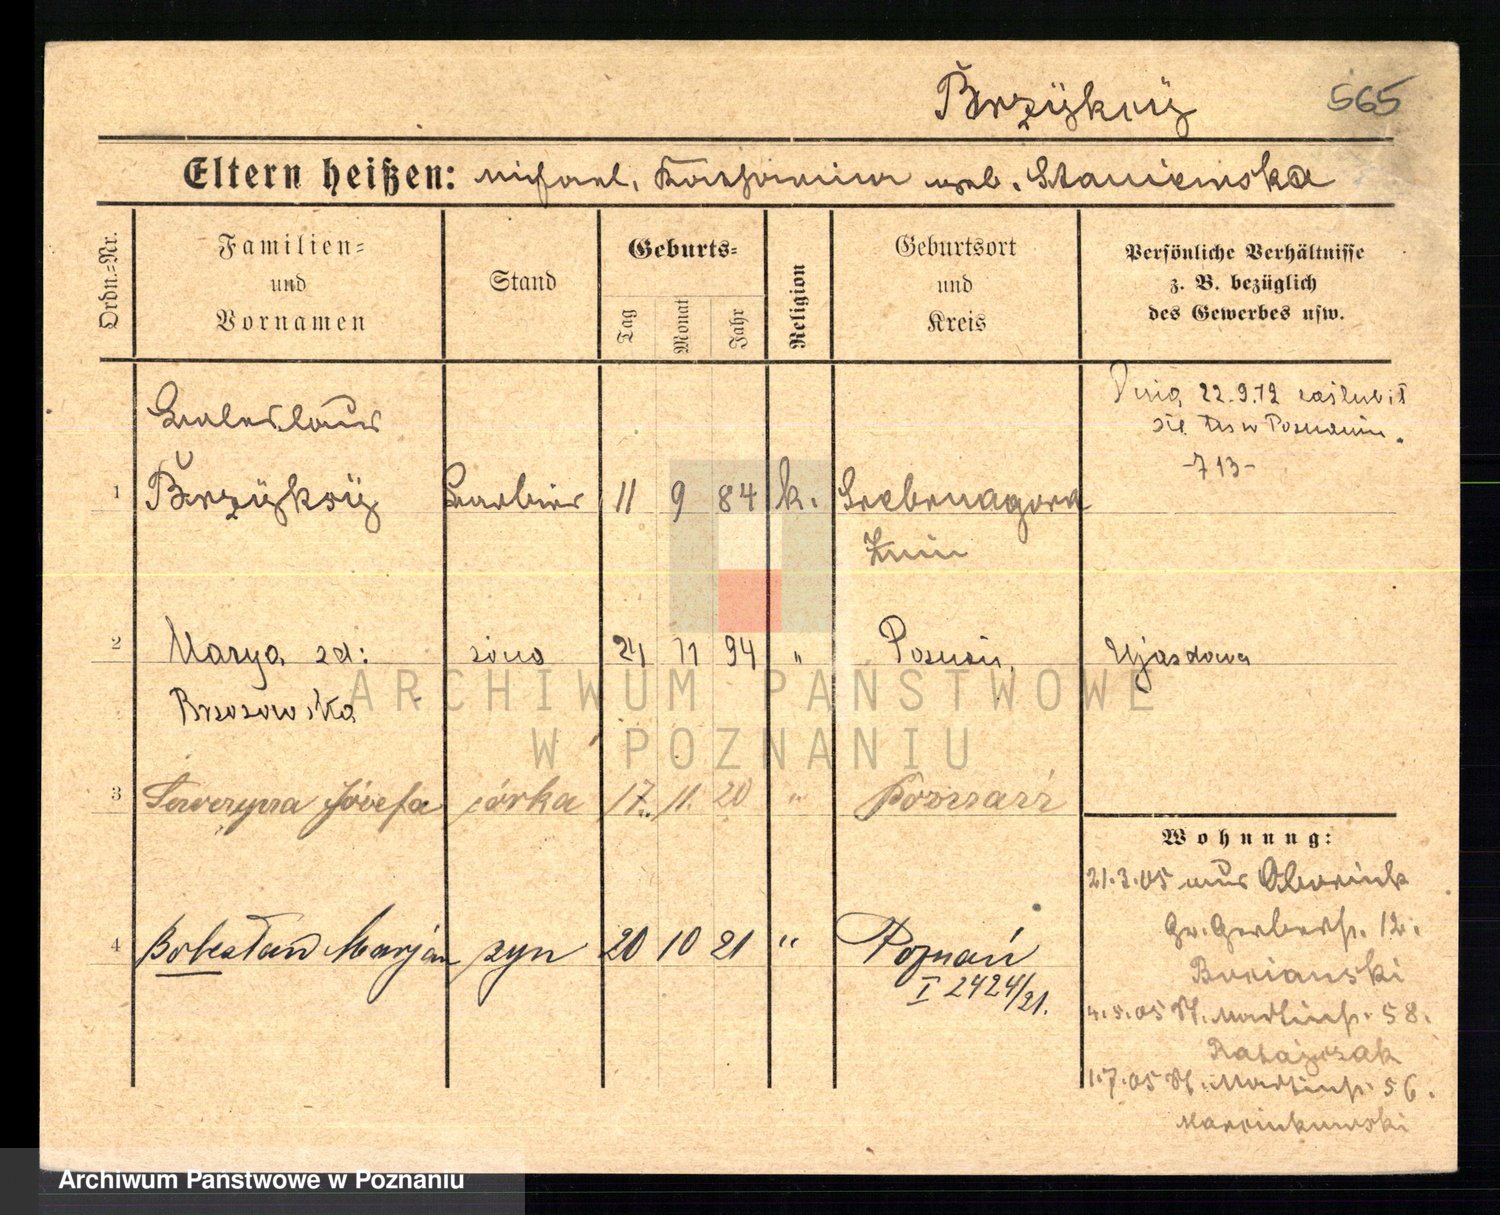 Brzÿkcÿ 565
Eltern heißen: Michael, Katharina geb. Staniewska
Ordn.-Nr.
Familien- und Vornamen
Stand
Geburts-
Tag
Monat
Jahr
Religion
Geburtsort und Kreis
Persönliche Verhältnisse z. B. bezüglich des Gewerbes usw.
22.9.19 zaślubił
się tu w Poznaniu.
-713-
1 Brzÿkcÿ Barbier 11 9 84 k. Srebrnagora
Znin
2 Marya zd: żona 24 11 94 " Poznań, Ujazdowa
Brzozowska
3 Seweryna Józefa córka 17. 11. 20 " Poznań
Wohnung:
21.3.05 aus Obornik
Gr. Gerberstr. 12.
4 Bolesław Marjan syn 20 10 21 " Poznań
I 2424/21.
4.5.05 St. Martinstr. 58.
Ratajczak
1.7.05 St. Martinstr. 56.
Marcinkowski
ARCHIWUM PAŃSTWOWE
W POZNANIU
Archiwum Państwowe w Poznaniu